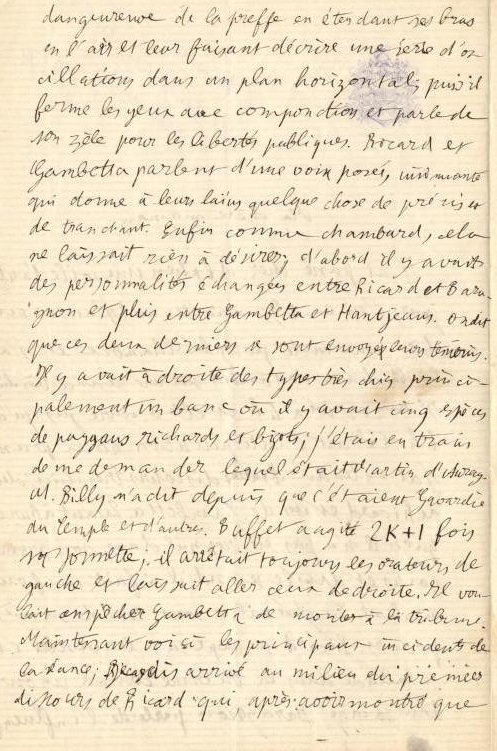 dangereuse de la presse en étendant ses bras
en l'air et leur faisant décrire une série d'os
cillations dans un plan horizontal; puis il
ferme les yeux avec componction et parle de
son zèle pour les libertés publiques. Ricard et
Gambetta parlent d'une voix posée,
qui donne à leurs laïus quelque chose de précis et
de tranchant. Enfin comme chambard, cela
ne laissait rien à désirer; d'abord il y avait
des personnalités échangées entre Ricard et Bara
gnon et plus entre Gambetta et Hantjeans. On dit
que ces deux derniers se sont envoyé leurs témoins.
Il y avait à droite des types très chig princi-
palement un banc où il y avait cinq espèces
de paysans richards et bigots; j'étais en train
de me demander lequel était Martin d'Auray.
M. Billy m'a dit depuis que c'étaient Gavardie
du Temple et d'autres. Buffet a agité 2K+1 fois
sa sonnette; il arrêtait toujours les orateurs de
gauche et laissait aller ceux de droite. Il vou
lait empêcher Gambetta de monter à la tribune.
Maintenant voici les principaux incidents de
la séance; je suis arrivé au milieu du premier
discours de Ricard qui, après avoir montré que